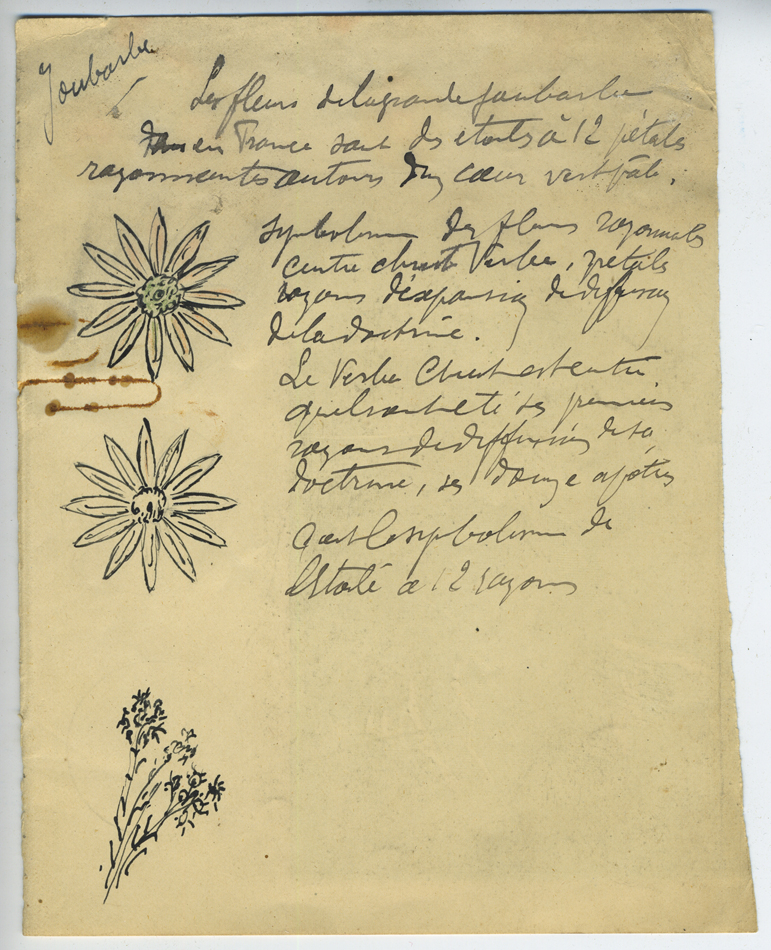 Joubarbe
Les fleurs de la grande joubarbe
en France sont des étoiles à 12 pétales
rayonnantes autour d'un cœur vert pâle.
symbolisme des fleurs rayonnales
centre christ Verbe, pétales
rayons d'expansion de diffusion
de la doctrine.
Le Verbe Christ est centre
quels ont été ses premiers
rayons de diffusion de sa
doctrine, ses douze apôtres
c'est le symbolisme de
l'étoile à 12 rayons